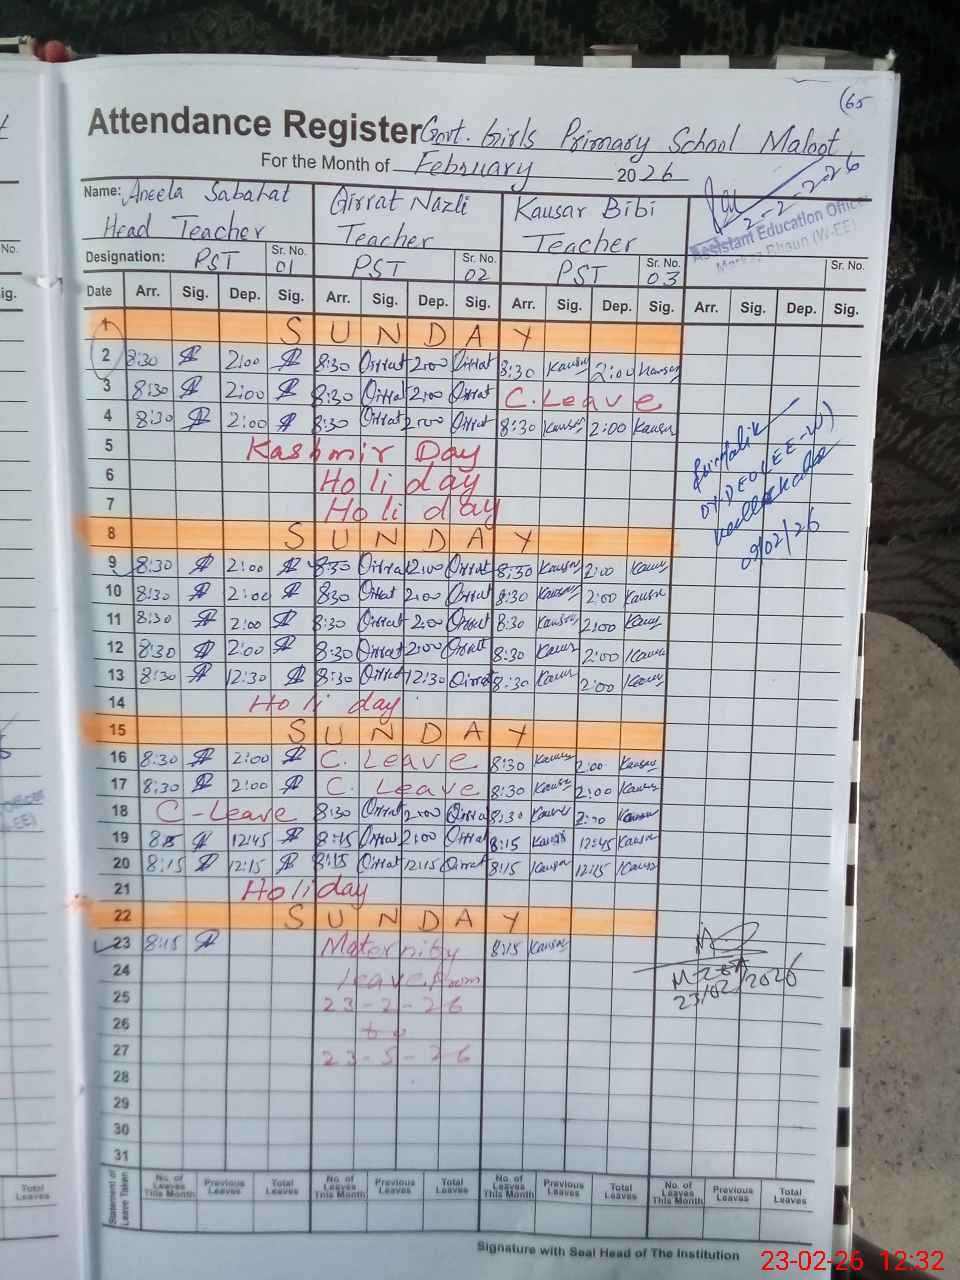 (65
Attendance Register Govt. Girls Primary School Maloot
For the Month of February 2026
Name: Aneela Sabahat Qirrat Nazli Kausar Bibi
Head Teacher Teacher Teacher
2-2-2026
Assistant Education Officer
Markaz Bhaun (W-EE)
Designation: PST Sr. No. 01 PST Sr. No. 02 PST Sr. No. 03 Sr. No.
Date Arr. Sig. Dep. Sig. Arr. Sig. Dep. Sig. Arr. Sig. Dep. Sig. Arr. Sig. Dep. Sig.
1 SUNDAY
2 8:30 2:00 8:30 Qirrat 2:00 Qirrat 8:30 Kausar 2:00 Kausar
3 8:30 2:00 8:30 Qirrat 2:00 Qirrat C. Leave
4 8:30 2:00 8:30 Qirrat 2:00 Qirrat 8:30 Kausar 2:00 Kausar
5 Kashmir Day
6 Holiday
7 Holiday
8 SUNDAY
9 8:30 2:00 8:30 Qirrat 2:00 Qirrat 8:30 Kausar 2:00 Kausar
10 8:30 2:00 8:30 Qirrat 2:00 Qirrat 8:30 Kausar 2:00 Kausar
11 8:30 2:00 8:30 Qirrat 2:00 Qirrat 8:30 Kausar 2:00 Kausar
12 8:30 2:00 8:30 Qirrat 2:00 Qirrat 8:30 Kausar 2:00 Kausar
13 8:30 12:30 8:30 Qirrat 12:30 Qirrat 8:30 Kausar 2:00 Kausar
14 Holiday
15 SUNDAY
16 8:30 2:00 C. Leave 8:30 Kausar 2:00 Kausar
17 8:30 2:00 C. Leave 8:30 Kausar 2:00 Kausar
18 C-Leave 8:30 Qirrat 2:00 Qirrat 8:30 Kausar Kausar
19 12:45 8:15 Qirrat 2:00 Qirrat 8:15 Kausar 12:45 Kausar
20 8:15 12:15 8:15 Qirrat 12:15 Qirrat 8:15 Kausar 12:15 Kausar
21 Holiday
22 SUNDAY
23 8:15 Maternity 8:15 Kausar
24 leave from
25 23-2-26
26 to
27 23-5-26
28
29
30
31
DY DEO (EE-W)
09/02/26
23/02/2026
Statement of Leave Taken No. of Leaves This Month Previous Leaves Total Leaves No. of Leaves This Month Previous Leaves Total Leaves No. of Leaves This Month Previous Leaves Total Leaves No. of Leaves This Month Previous Leaves Total Leaves
Signature with Seal Head of The Institution
Sig.
Total Leaves
23-02-26 12:32